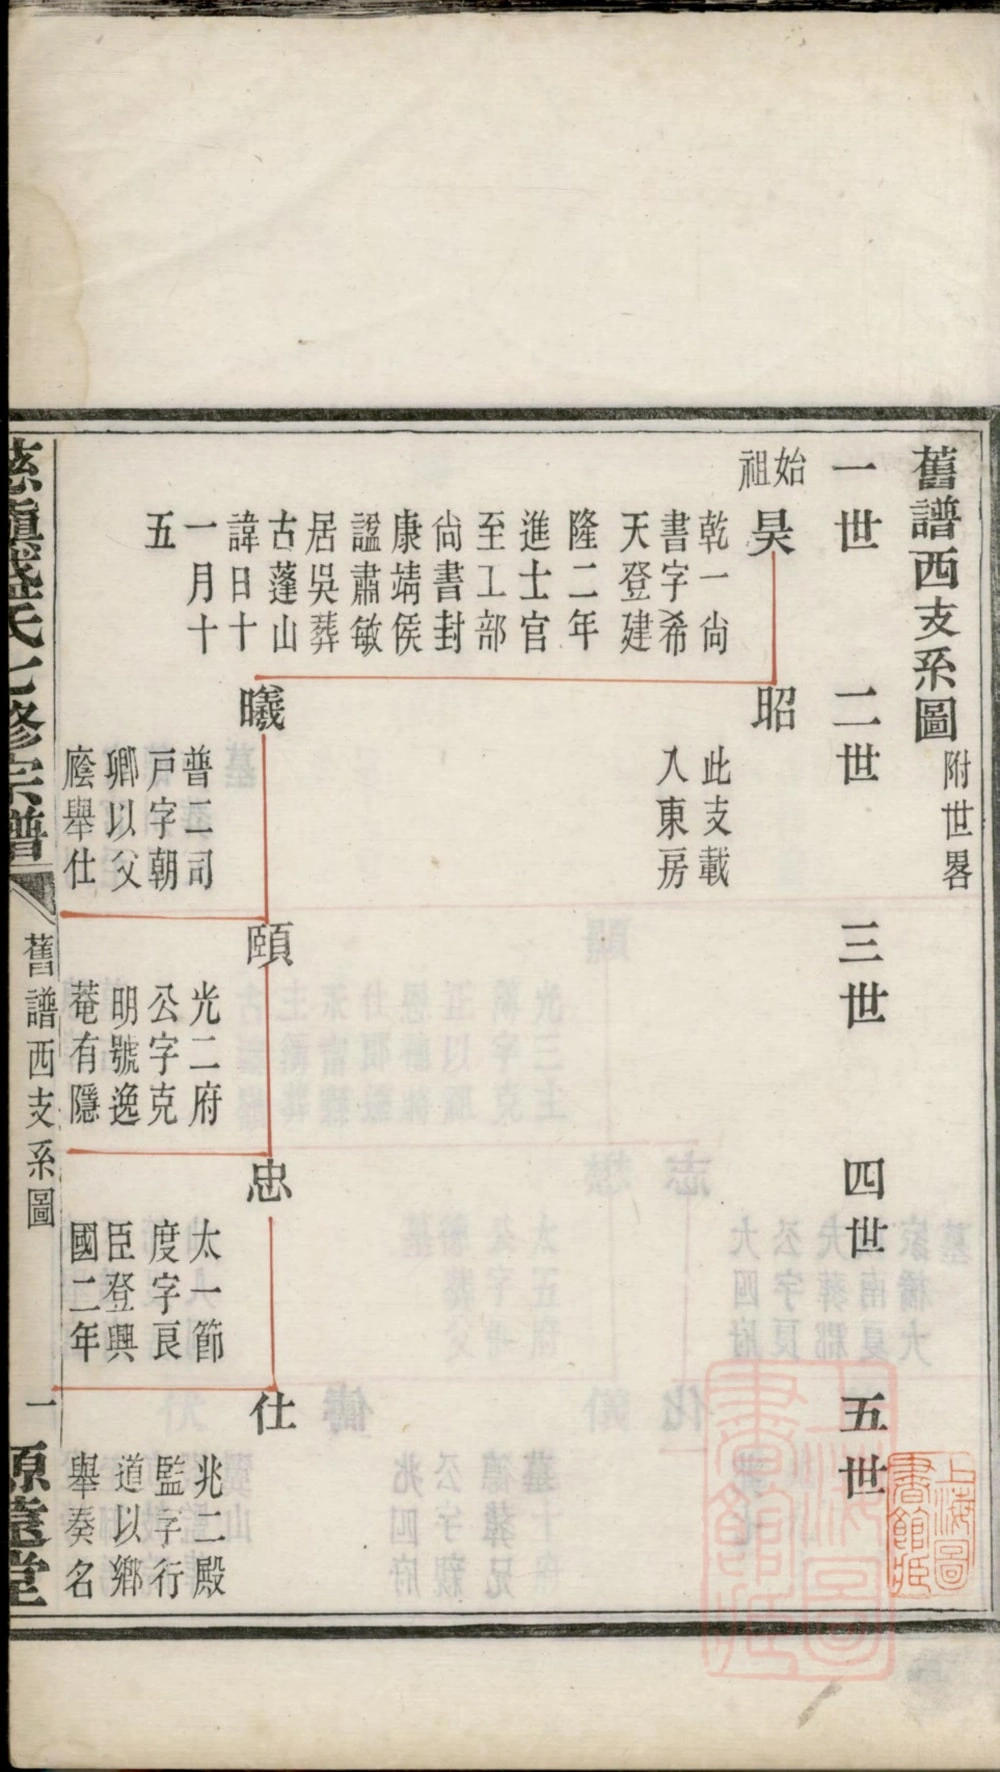 舊譜西支系圖 附世畧
一世 二世 三世 四世 五世
始祖
昊
乾一尙
書字希
天登建
隆二年
進士官
至工部
尙書封
康靖侯
諡肅敏
居吳葬
古蓬山
諱日十
一月十
五
昭
此支載
入東房
曦
普二司
戸字朝
卿以父
廕舉仕
頤
光二府
公字克
明號逸
菴有隱
忠
太一節
度字良
臣登興
國二年
仕
兆二殿
監字行
道以鄉
舉奏名
氏七修宗譜
舊譜西支系圖
一
堂
上海圖書館藏